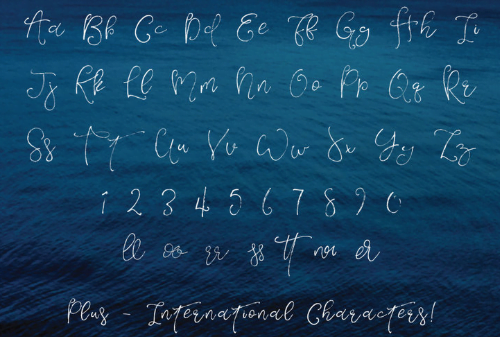 Aa Bb Cc Dd Ee Ff Gg Hh Ii
Jj Kk Ll Mm Nn Oo Pp Qq Rr
Ss Tt Uu Vv Ww Xx Yy Zz
1 2 3 4 5 6 7 8 9 0
ll oo rr ss tt nr er
Plus - International Characters!